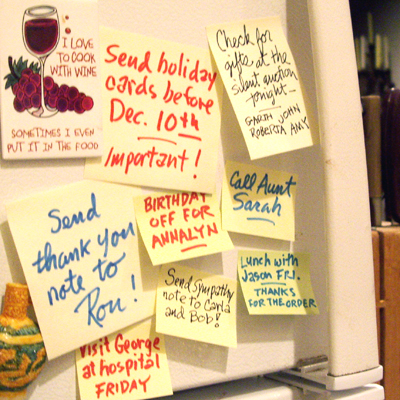 I LOVE
TO COOK
WITH WINE
SOMETIMES I EVEN
PUT IT IN THE FOOD
Send holiday
cards before
Dec. 10th
Important!
Check for
gifts at the
silent auction
tonight—
GARTH JOHN
ROBERTA AMY
Send
thank you
note to
Ron!
BIRTHDAY
OFF FOR
ANNALYN
Call Aunt
Sarah
Send Sympathy
note to Carla
and Bob!
Lunch with
Jason FRI.
THANKS
FOR THE ORDER
Visit George
at hospital
FRIDAY